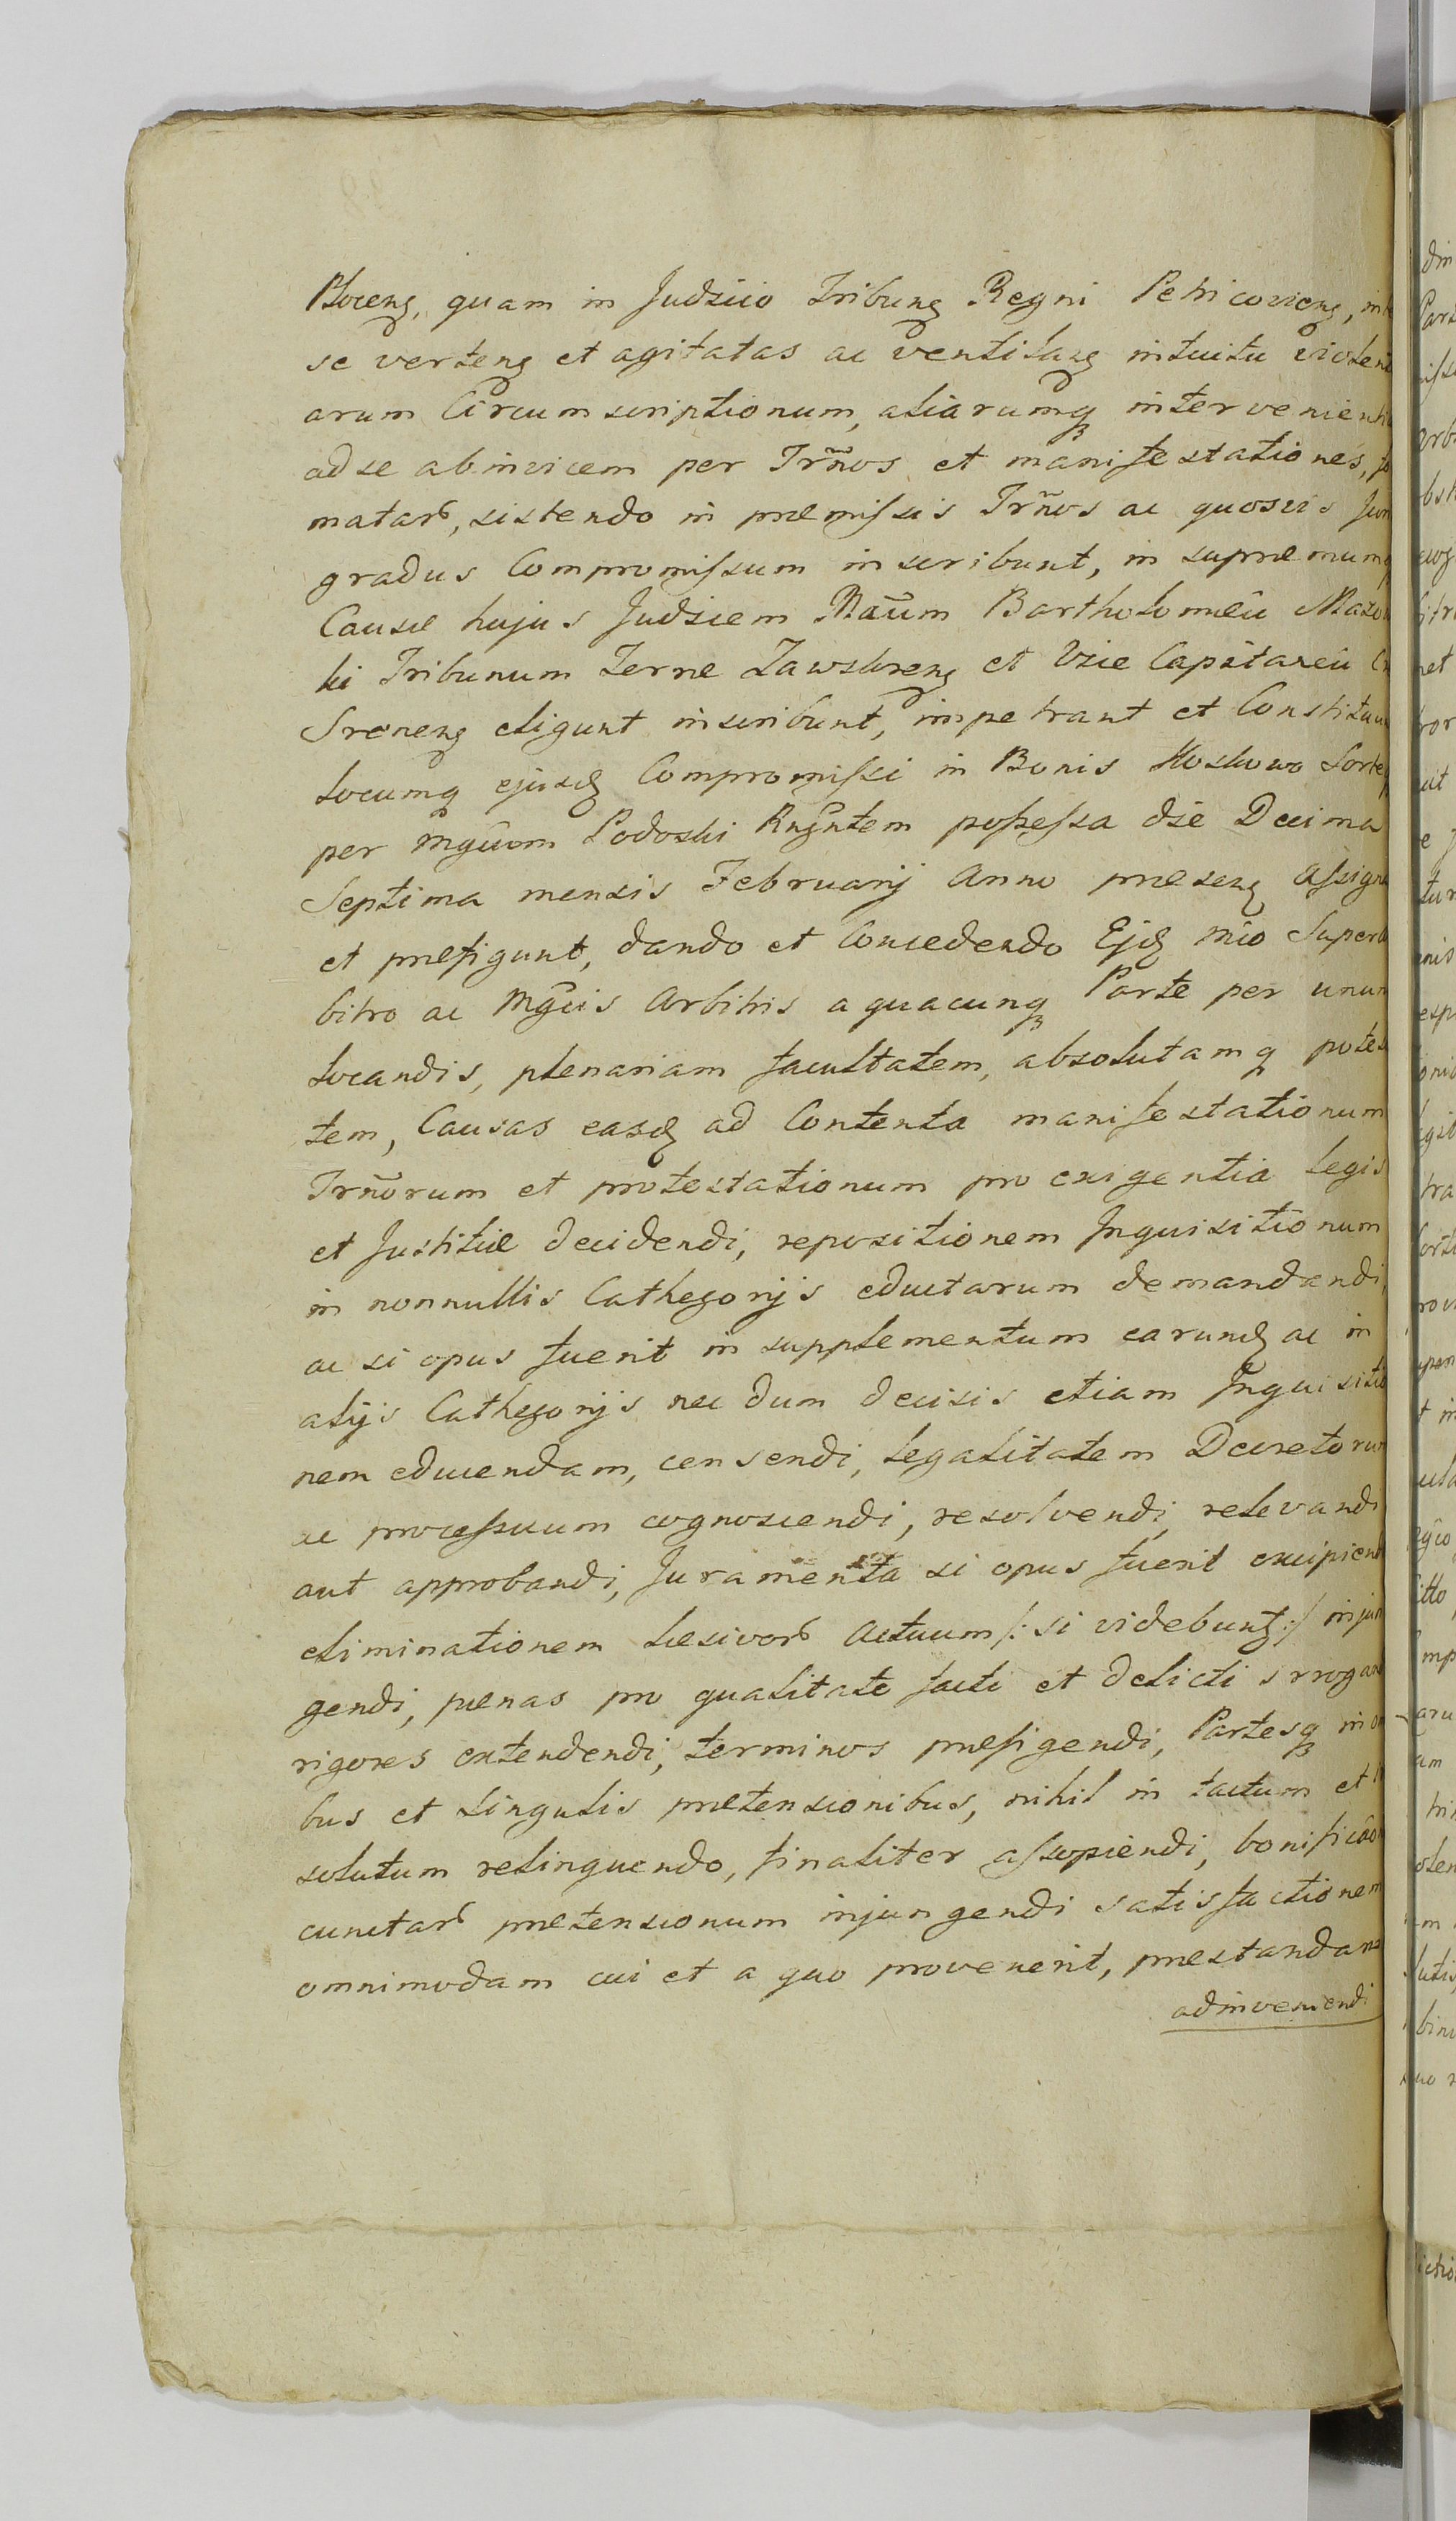 Ploceng, quam in Judicio Tribung Regni Petricovieng, int
se verteng et agitatas ac ventilang intuitu violen
arum Circumscriptionum, aliarumq intervenienti
ad se ab invicem per Trnos et manifestationes,
matar, sistendo in præmissis Trnos ac quosvis Jur
gradus Compromissum inscribunt, in supræmumq
Causæ hujus Judicem Mag̃um Bartholomeũ Mazow
ki Tribunum Terræ Zawskreng et Vice Capitaneũ
Sreneng eligunt inscribunt, impetrant et Constituu
locumq ejusd Compromissi in Bonis Koskowo Sorte
per Mgũum Podoski Rngntem possessa die Decima
Septima mensis Februarij Anno præseng assigna
et præfigunt, dando et Concedendo Ejd mĩo Superar
bitro ac Mgcis Arbitris a quacunq Parte per unum
locandis, plenariam facultatem, absolutamq potes
tem, Causas easd ad Contenta manifestationum
Trñorum et protestationum pro exigentia legis
et Justitiæ decidendi, repositionem Inquisitionum
in nonnullis Cathegorijs eductarum demandandi,
ac si opus fuerit in supplementum earund ac in
alijs Cathegorijs nec dum decisis etiam Inquisitio
nem educendam, censendi, legalitatem Decretorum
ac processuum cognoscendi, resolvendi, relevandi
aut approbandi, Juramenta si opus fuerit excipiend
eliminationem læsivor Actuum /: si videbunt :/ injun
gendi, pænas pro qualitate facti et delicti irrogan
rigores extendendi, terminos præfigendi, Partesq in om
bus et singulis prætensionibus, nihil in tactum et
solutum relinquendo, finaliter assopiendi, bonificãon
cunctar prætensionum injungendi satisfactionem
omnimodam cui et a quo provenerit, præstandam
adinveniendi